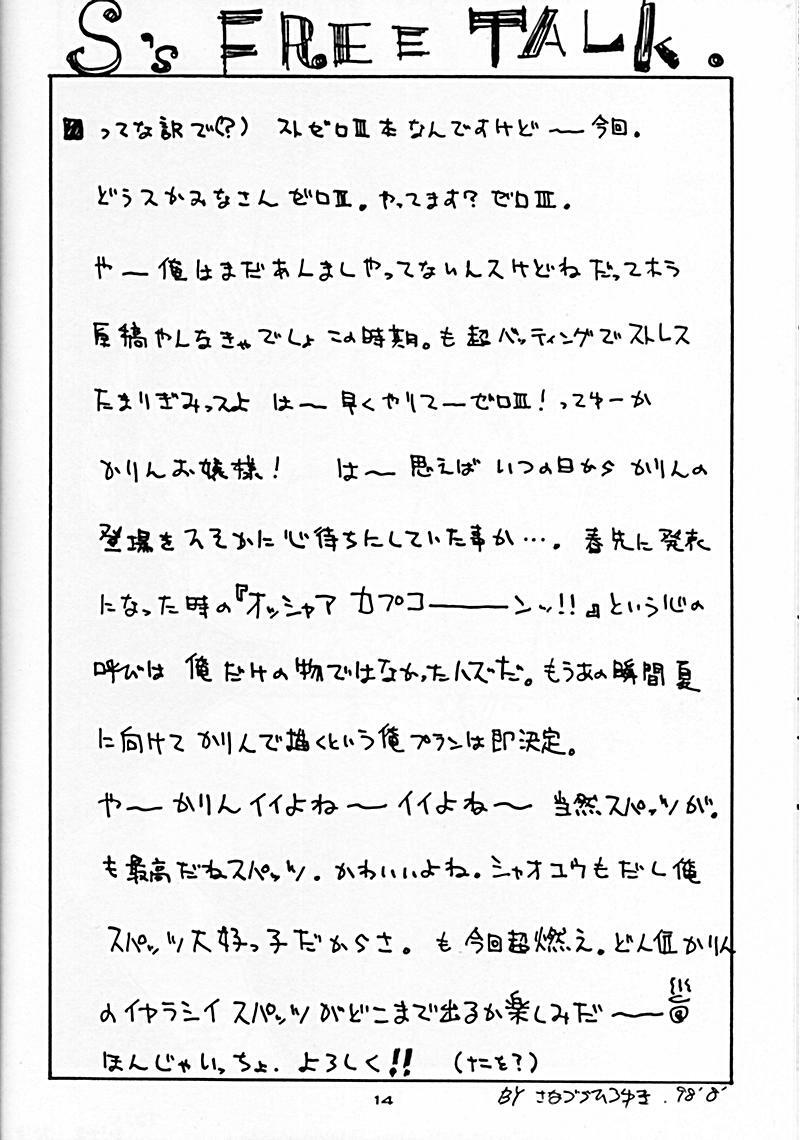 S's FREE TALK.
ってな訳で(?) ストゼロⅢ本なんですけど〜今回。
どうスかみなさんゼロⅢ。やってます?ゼロⅢ。
や〜俺はまだあんましやってないんスけどねだってホラ
原稿やんなきゃでしょこの時期。も超バッティングでストレス
たまりぎみっスよ は〜早くやりてーゼロⅢ!ってゆーか
かりんお嬢様! は〜思えばいつの日からかりんの
登場をヘそかに心待ちにしていた事か…。春先に発表
になった時の『オッシャアカプコーーーンッ!!』という心の
呼びは俺だけの物ではなかったハズだ。もうあの瞬間夏
に向けてかりんで描くという俺プランは即決定。
や〜かりんイイよね〜イイよね〜当然スパッツが。
も最高だねスパッツ。かわいいよね。シャオユウもだし俺
スパッツ大好っ子だからさ。も今回超燃え。どん位かりん
のイヤラシイスパッツがどこまで出るか楽しみだ〜
ほんじゃいっちょ.よろしく!! (ナニを?)
14
BY 98'8'